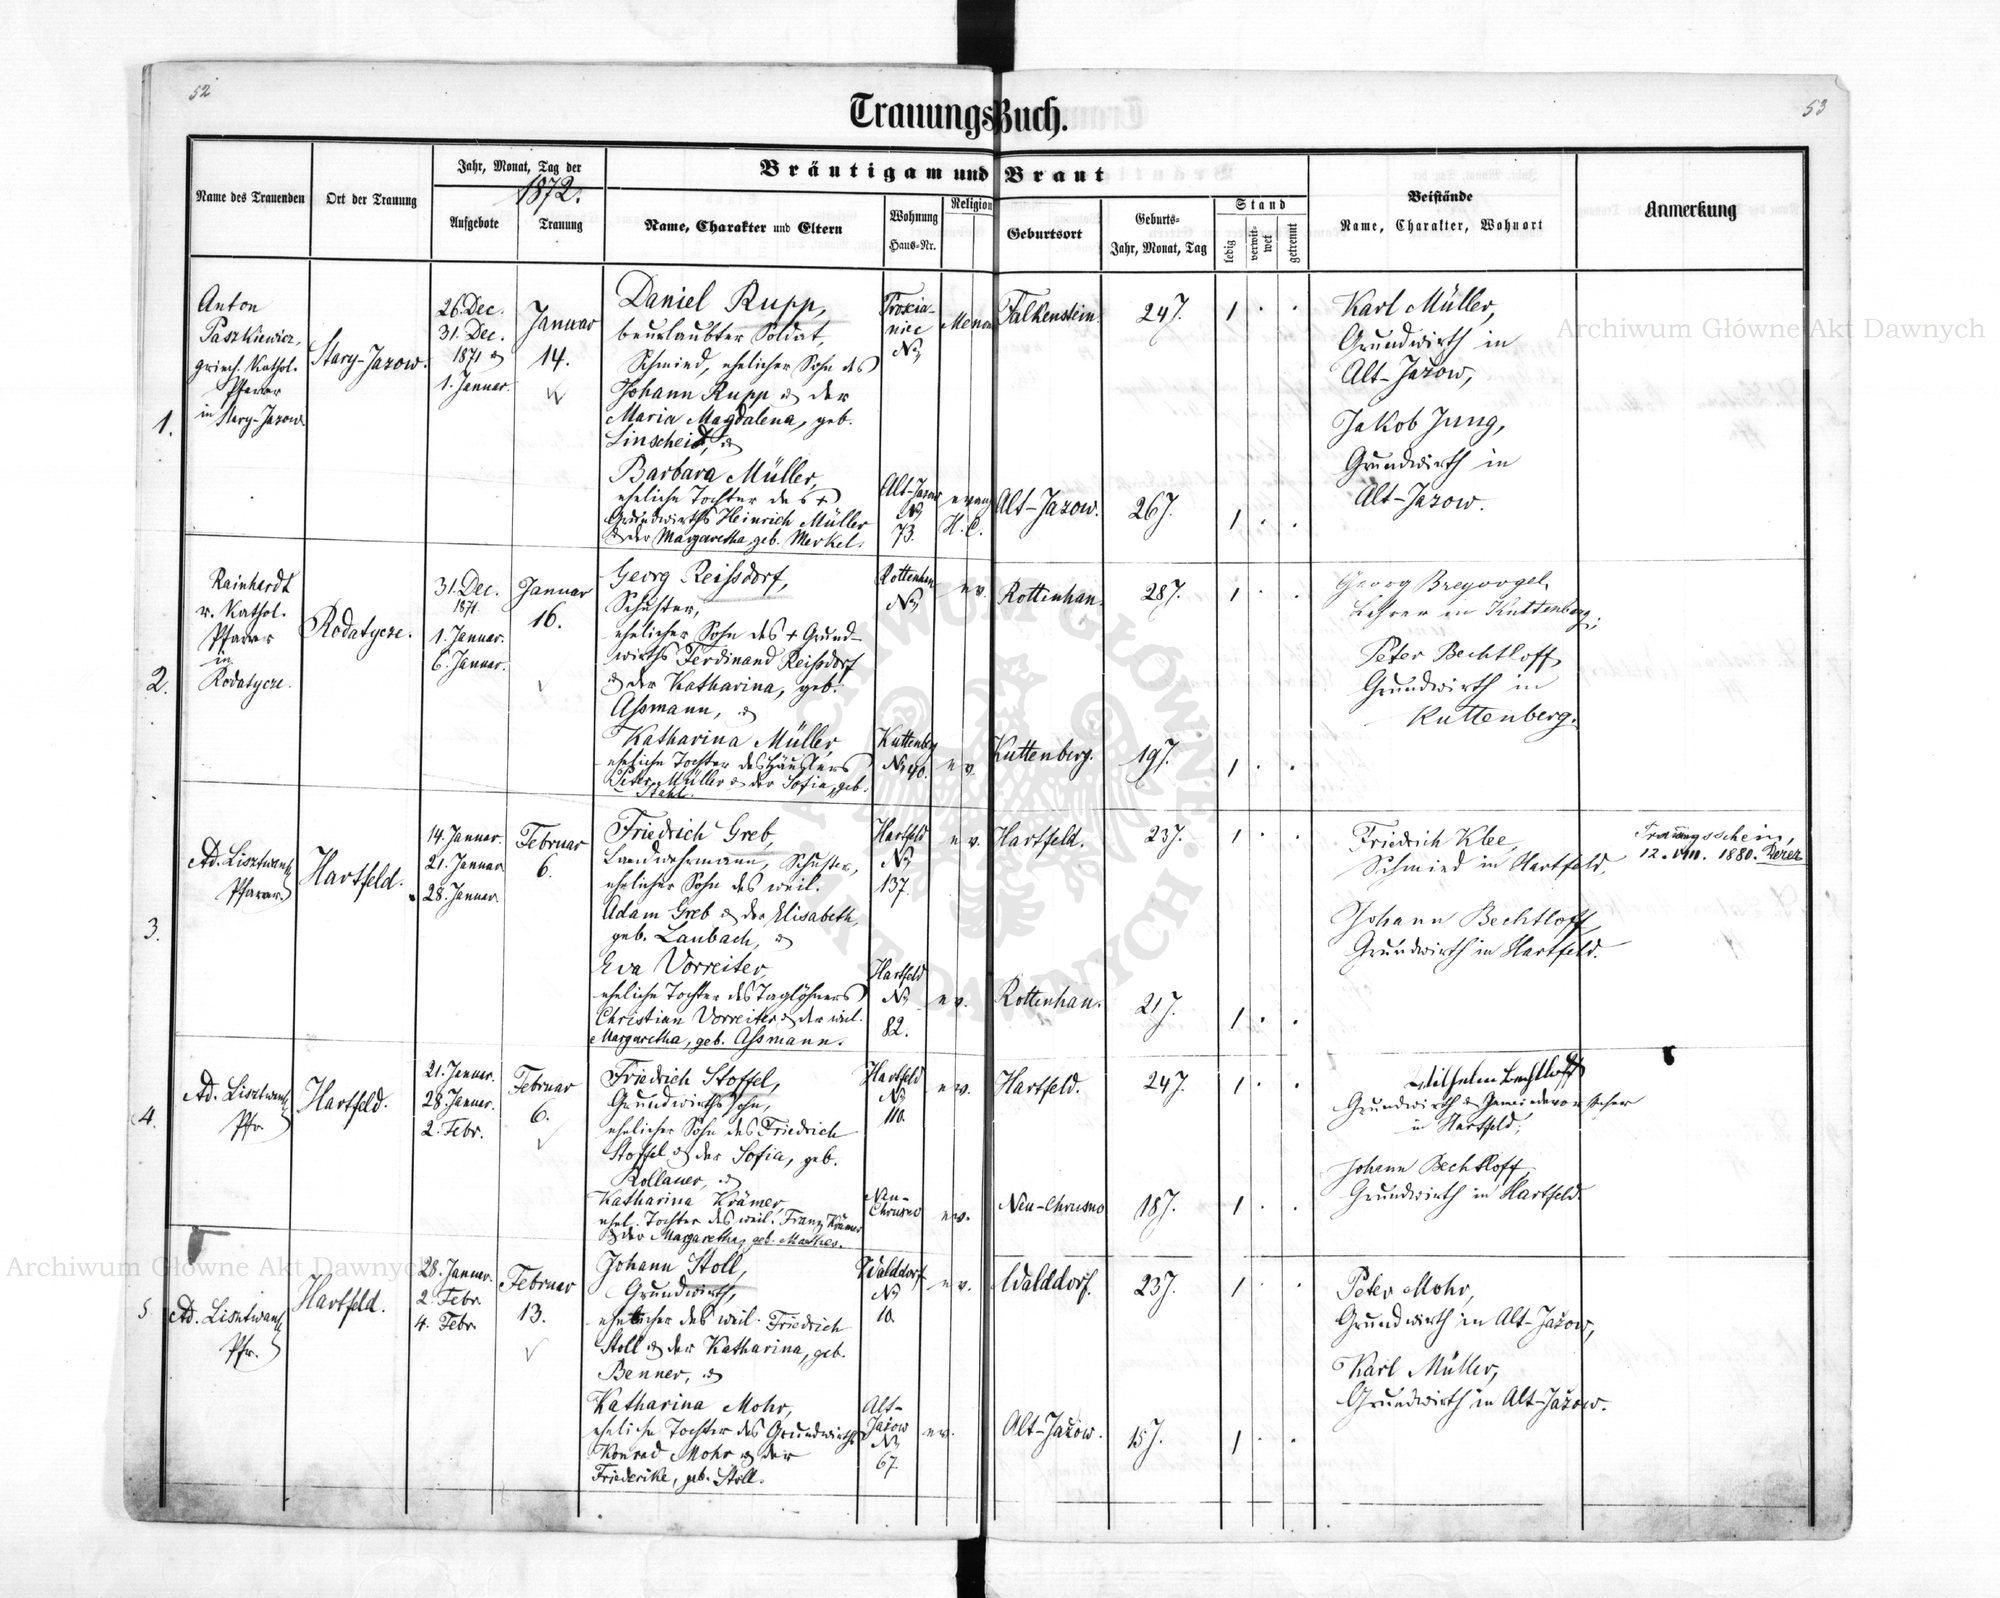 52
53
TrauungsBuch.
Name des Trauenden
Ort der Trauung
Jahr, Monat, Tag der
1872.
Aufgebote
Trauung
Bräutigam und Braut
Name, Charakter und Eltern
Wohnung
Haus-Nr.
Religion
Geburtsort
Geburts-
Jahr, Monat, Tag
Stand
ledig
verwit-
wet
getrennt
Beistände
Name, Charakter, Wohnort
Anmerkung
1.
Anton
Paszkiewicz,
griech. Kathol.
Pfarrer
in Stary-Jazow.
Stary-Jazow.
26. Dec.
31. Dec.
1871 &
1. Januar.
Januar
14.
Daniel Rupp,
beurlaubter Soldat,
Schmied, ehelicher Sohn des
Johann Rupp & der
Maria Magdalena, geb.
Linscheid, &
Barbara Müller,
eheliche Tochter des +
Grundwirths Heinrich Müller
& der Margaretha, geb. Merkel.
No
Alt-Jazow
No
73.
Menon
evang
H. C.
Falkenstein.
Alt-Jazow.
24 J.
26 J.
1 . .
1 . .
Karl Müller,
Grundwirth in
Alt-Jazow,
Jakob Jung,
Grundwirth in
Alt-Jazow.
2.
Rainhardt
r. Kathol.
Pfarrer
in
Rodatycze.
Rodatycze.
31. Dec.
1871.
1. Januar.
6. Januar.
Januar
16.
Georg Reissdorf,
Schuster,
ehelicher Sohn des + Grund-
wirths Ferdinand Reissdorf
& der Katharina, geb.
Assmann, &
Katharina Müller,
eheliche Tochter des Häuslers
Peter Müller & der Sofia, geb.
Stahl.
Rottenhan
No
Kuttenberg
No 40.
ev.
ev.
Rottenhan.
Kuttenberg.
28 J.
19 J.
1 . .
1 . .
Georg Breyvogel,
Lehrer in Kuttenberg;
Peter Bechtloff,
Grundwirth in
Kuttenberg.
3.
Ad. Lisztwan
Pfarrer.
Hartfeld.
14. Januar.
21. Januar
28. Januar.
Februar
6.
Friedrich Greb,
Landwehrmann, Schuster,
ehelicher Sohn des weil.
Adam Greb & der Elisabeth,
geb. Laubach, &
Eva Vorreiter,
eheliche Tochter des Taglöhners
Christian Vorreiter & der weil.
Margaretha, geb. Assmann.
Hartfeld
No
137
Hartfeld
No
82.
ev.
ev.
Hartfeld.
Rottenhan.
23 J.
21 J.
1 . .
1 . .
Friedrich Klee,
Schmied in Hartfeld.
Johann Bechtloff,
Grundwirth in Hartfeld.
Trauungsschein,
12. VIII. 1880.
4.
Ad. Lisztwan
Pfr.
Hartfeld.
21. Januar.
28. Januar.
2. Febr.
Februar
6.
Friedrich Stoffel,
Grundwirthssohn,
ehelicher Sohn des Friedrich
Stoffel & der Sofia, geb.
Kollauer, &
Katharina Krämer,
ehel. Tochter des weil. Franz Krämer
& der Margaretha, geb. Mathes.
Hartfeld
No
110.
Neu-
Chrusno
ev.
ev.
Hartfeld.
Neu-Chrusno
24 J.
18 J.
1 . .
1 . .
Wilhelm Bechtloff
Grundwirth & Gemeindevorsteher
in Hartfeld;
Johann Bechtloff,
Grundwirth in Hartfeld.
5.
Ad. Lisztwan
Pfr.
Hartfeld.
28. Januar.
2. Febr.
4. Febr.
Februar
13.
Johann Stoll,
Grundwirth,
ehelicher des weil. Friedrich
Stoll & der Katharina, geb.
Benner, &
Katharina Mohr,
eheliche Tochter des Grundwirths
Konrad Mohr & der
Friederike, geb. Stoll.
Walddorf
No
10.
Alt-
Jażow
No
67.
ev.
ev.
Walddorf.
Alt-Jażow.
23 J.
15 J.
1 . .
1 . .
Peter Mohr,
Grundwirth in Alt-Jażow,
Karl Müller,
Grundwirth in Alt-Jażow.
Archiwum Główne Akt Dawnych
Archiwum Główne Akt Dawnych
ARCHIWUM GŁÓWNE
AKT DAWNYCH